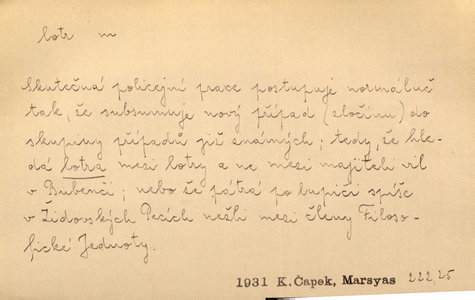 lotr m
skutečná policejní prace postupuje normálně
tak, že subsumuje nový případ (zločinu) do
skupiny případů již známých; tedy, že hle-
dá lotra mezi lotry a ne mezi majiteli vil
v Bubenči; nebo že pátrá po lupiči spíše
v Židovských Pecích nežli mezi členy Filoso-
fické Jednoty.
1931 K.Čapek, Marsyas 222,25